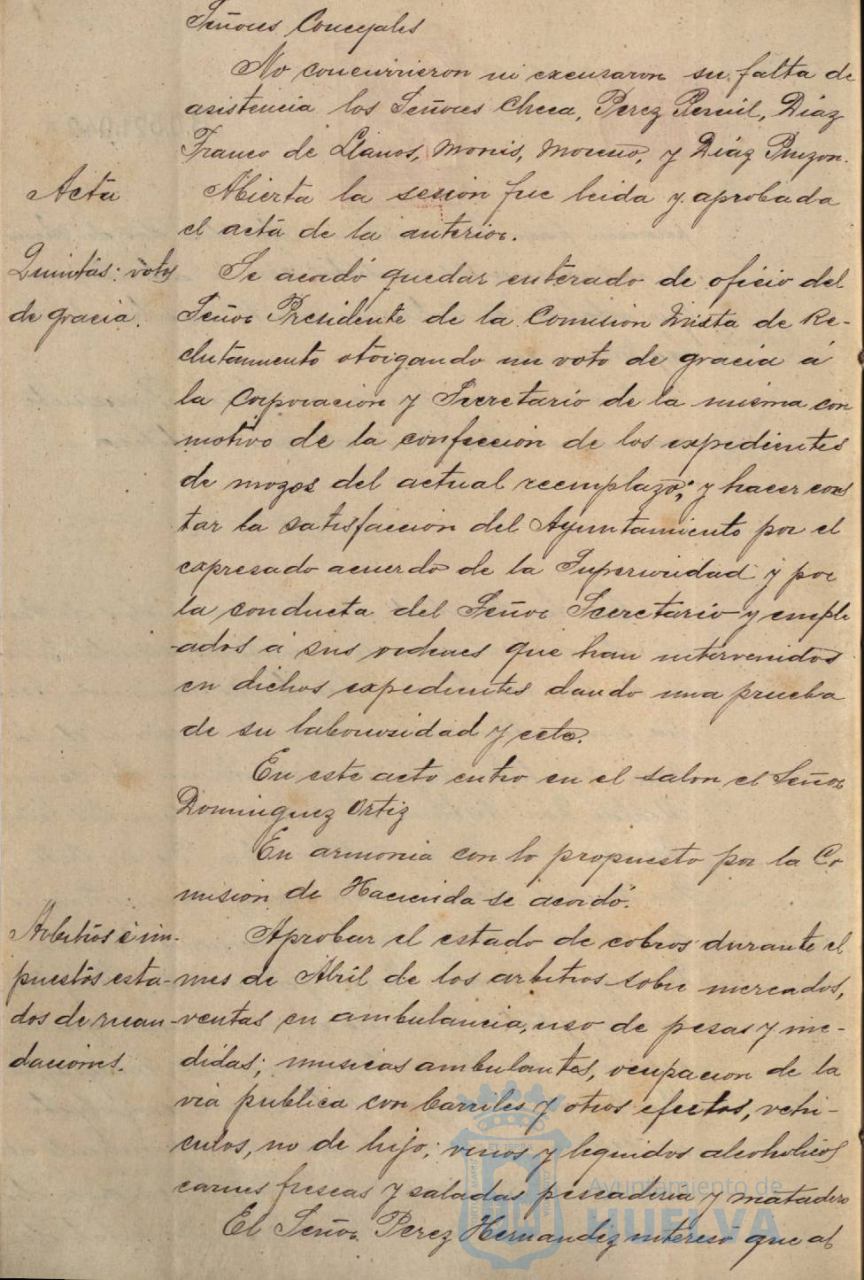 Señores Concejales
No concurrieron ni excusaron su falta de
asistencia los Señores Checa, Perez Pernil, Diáz
Franco de Llanos, Monis, Moreno, y Diáz Pinzon.
Acta
Abierta la sesion fue leida y aprobada
el acta de la anterior.
Quintas: votos
de gracia.
Se acordó quedar enterado de oficio del
Señor Presidente de la Comision Mista de Re-
clutamiento otorgando un voto de gracia á
la Corporacion y Secretario de la misma con
motivo de la confeccion de los expedientes
de mozos del actual reemplazo; y hacer cons
tar la satisfaccion del Ayuntamiento por el
expresado acuerdo de la Superioridad y por
la conducta del Señor Secretario y emple
-ados á sus ordenes que han intervenidos
en dichos expedientes dando una prueba
de su laboriosidad y celo.
En este acto entro en el salon el Señor
Dominguez Ortiz
En armonia con lo propuesto por la Co
mision de Hacienda se acordó.
Arbitrios é im-
puestos esta-
dos de recau-
daciones.
Aprobar el estado de cobros durante el
mes de Abril de los arbitrios sobre mercados,
ventas en ambulancia, uso de pesas y me-
didas; musicas ambulantes, ocupacion de la
via publica con barriles y otros efectos, vehi-
culos, no de lujo; vinos y liquidos alcoholicos
carnes frescas y saladas pescaderia y matadero
El Señor Perez Hernandez interesó que al
Ayuntamiento de
HUELVA